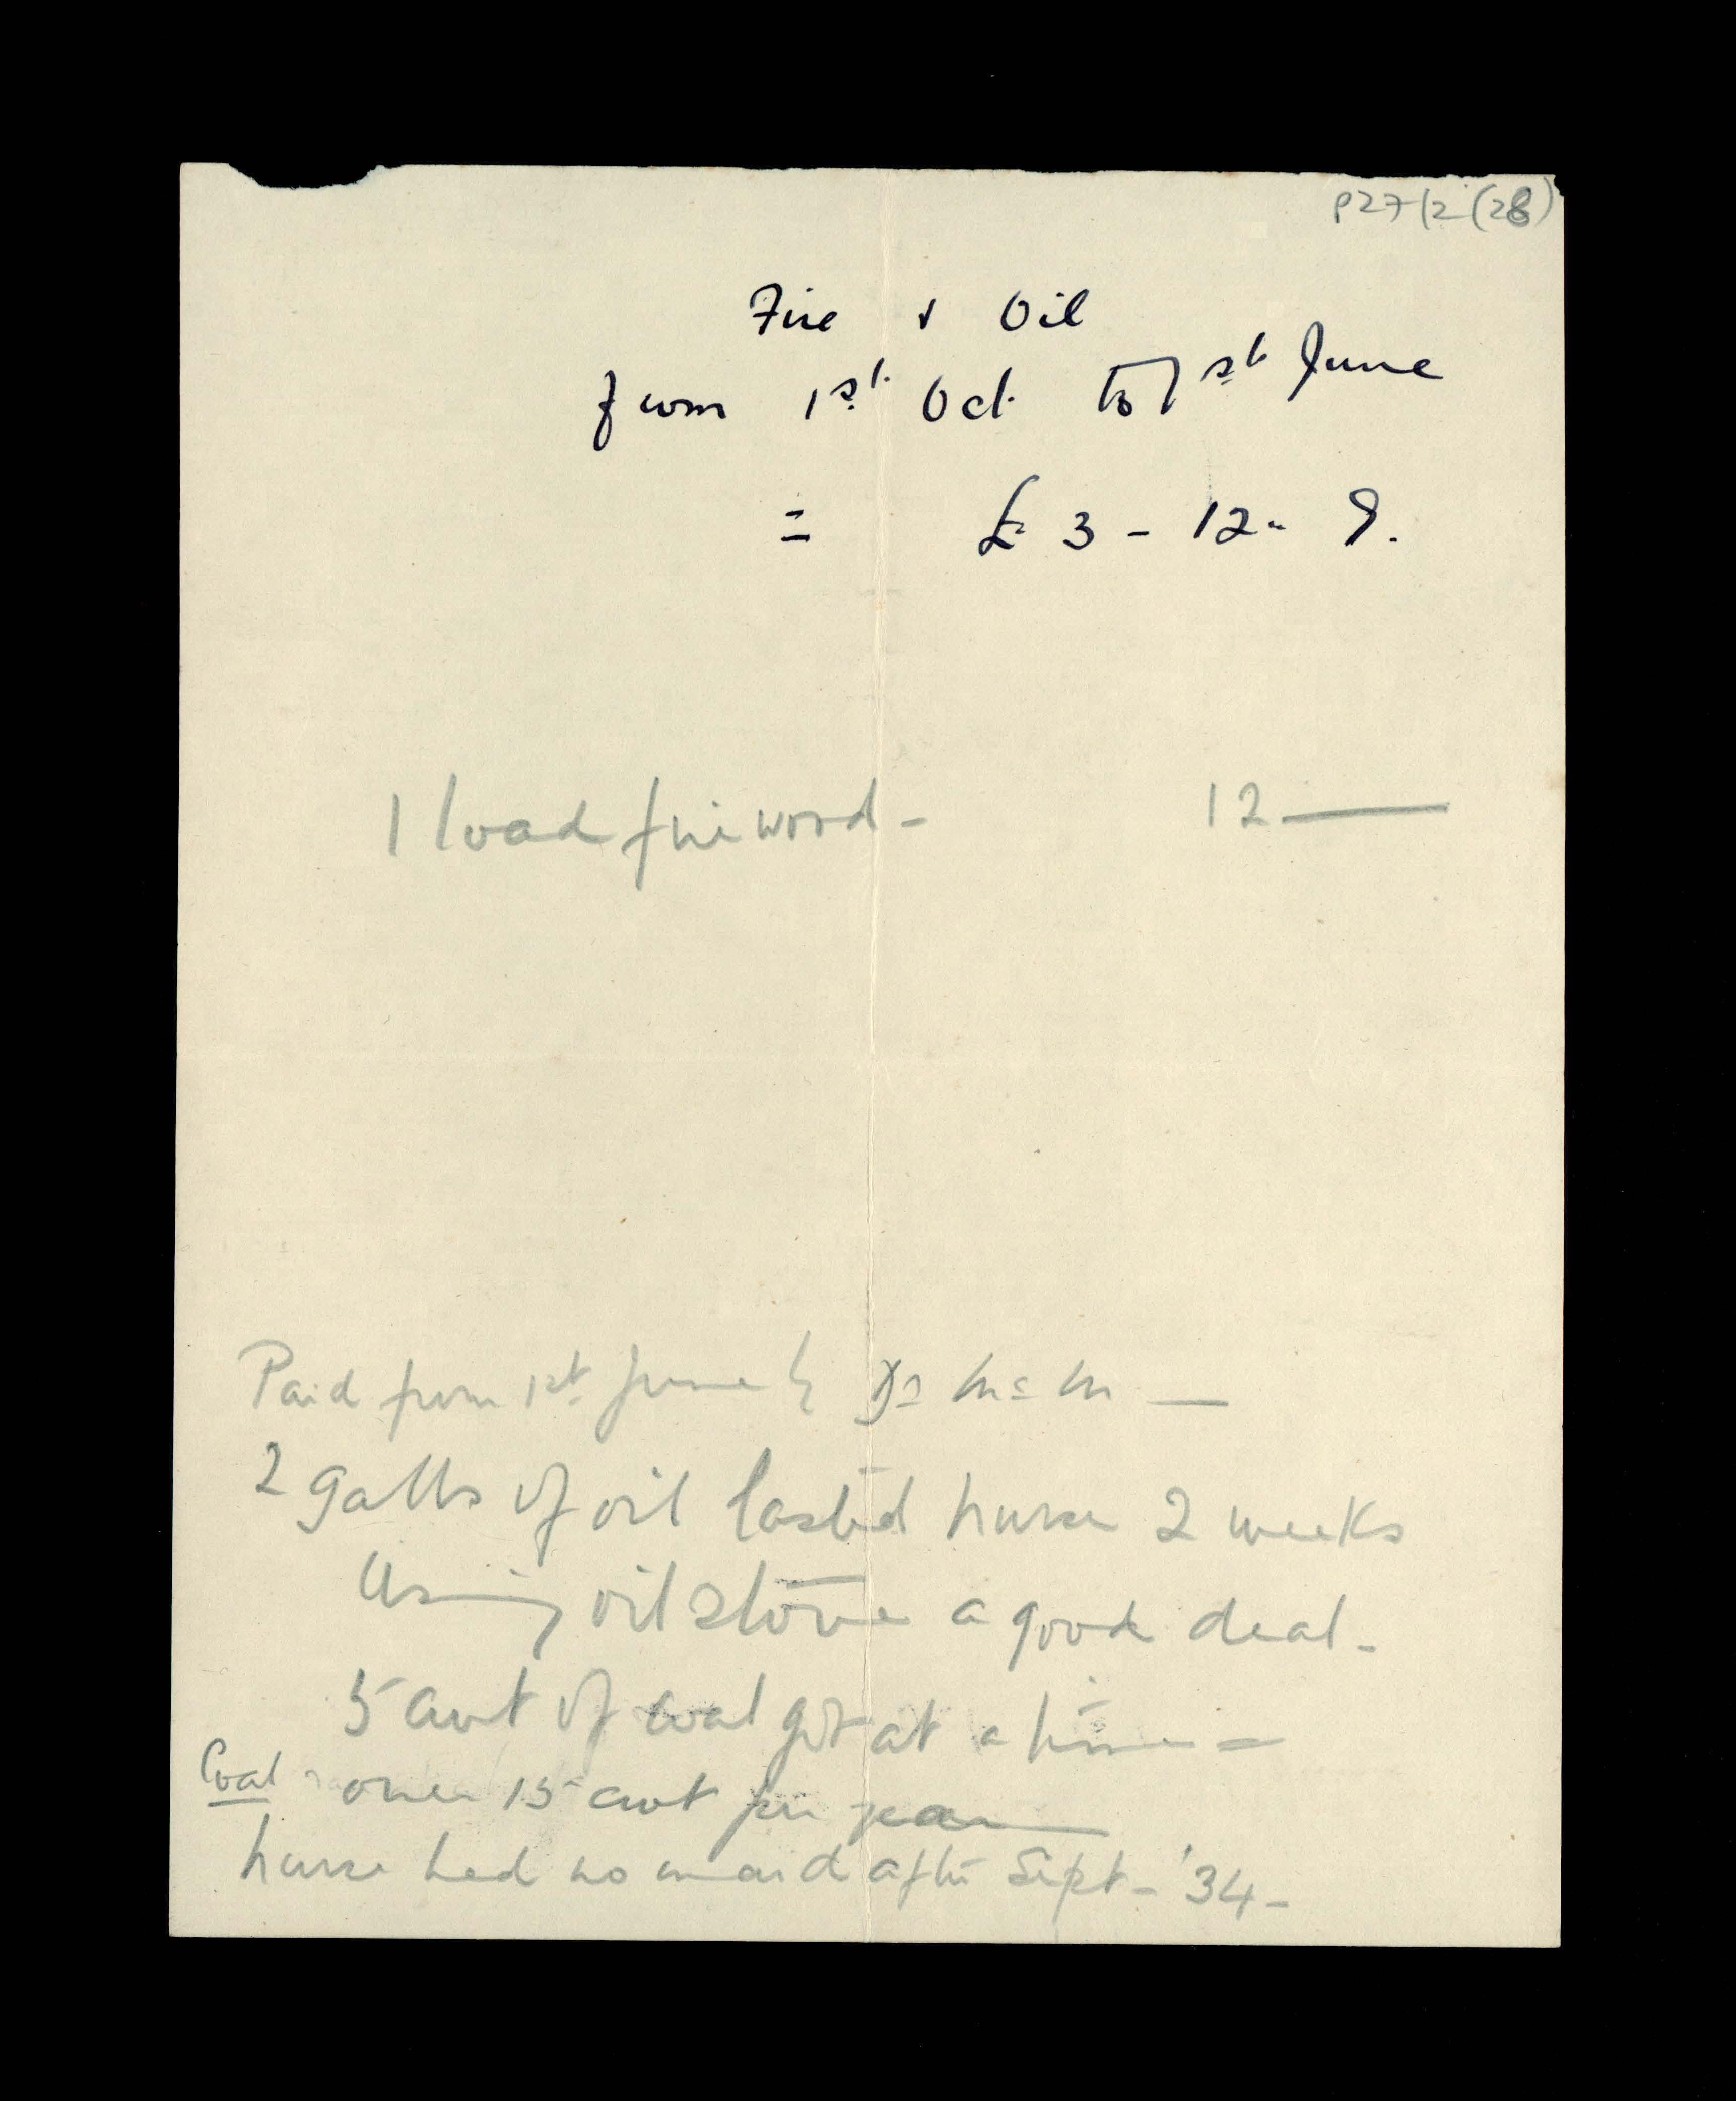 P27/2(28)
Fire & Oil
from 1st Oct. to 1st June
= £3-12-9.
1 load firewood - 12 —
Paid from 1st June by
2 galls of oil lasted nurse 2 weeks
Using oil stove a good deal -
5 cwt of coal got at a time -
Coal - over 15 cwt per year
nurse had no maid after Sept - '34 -